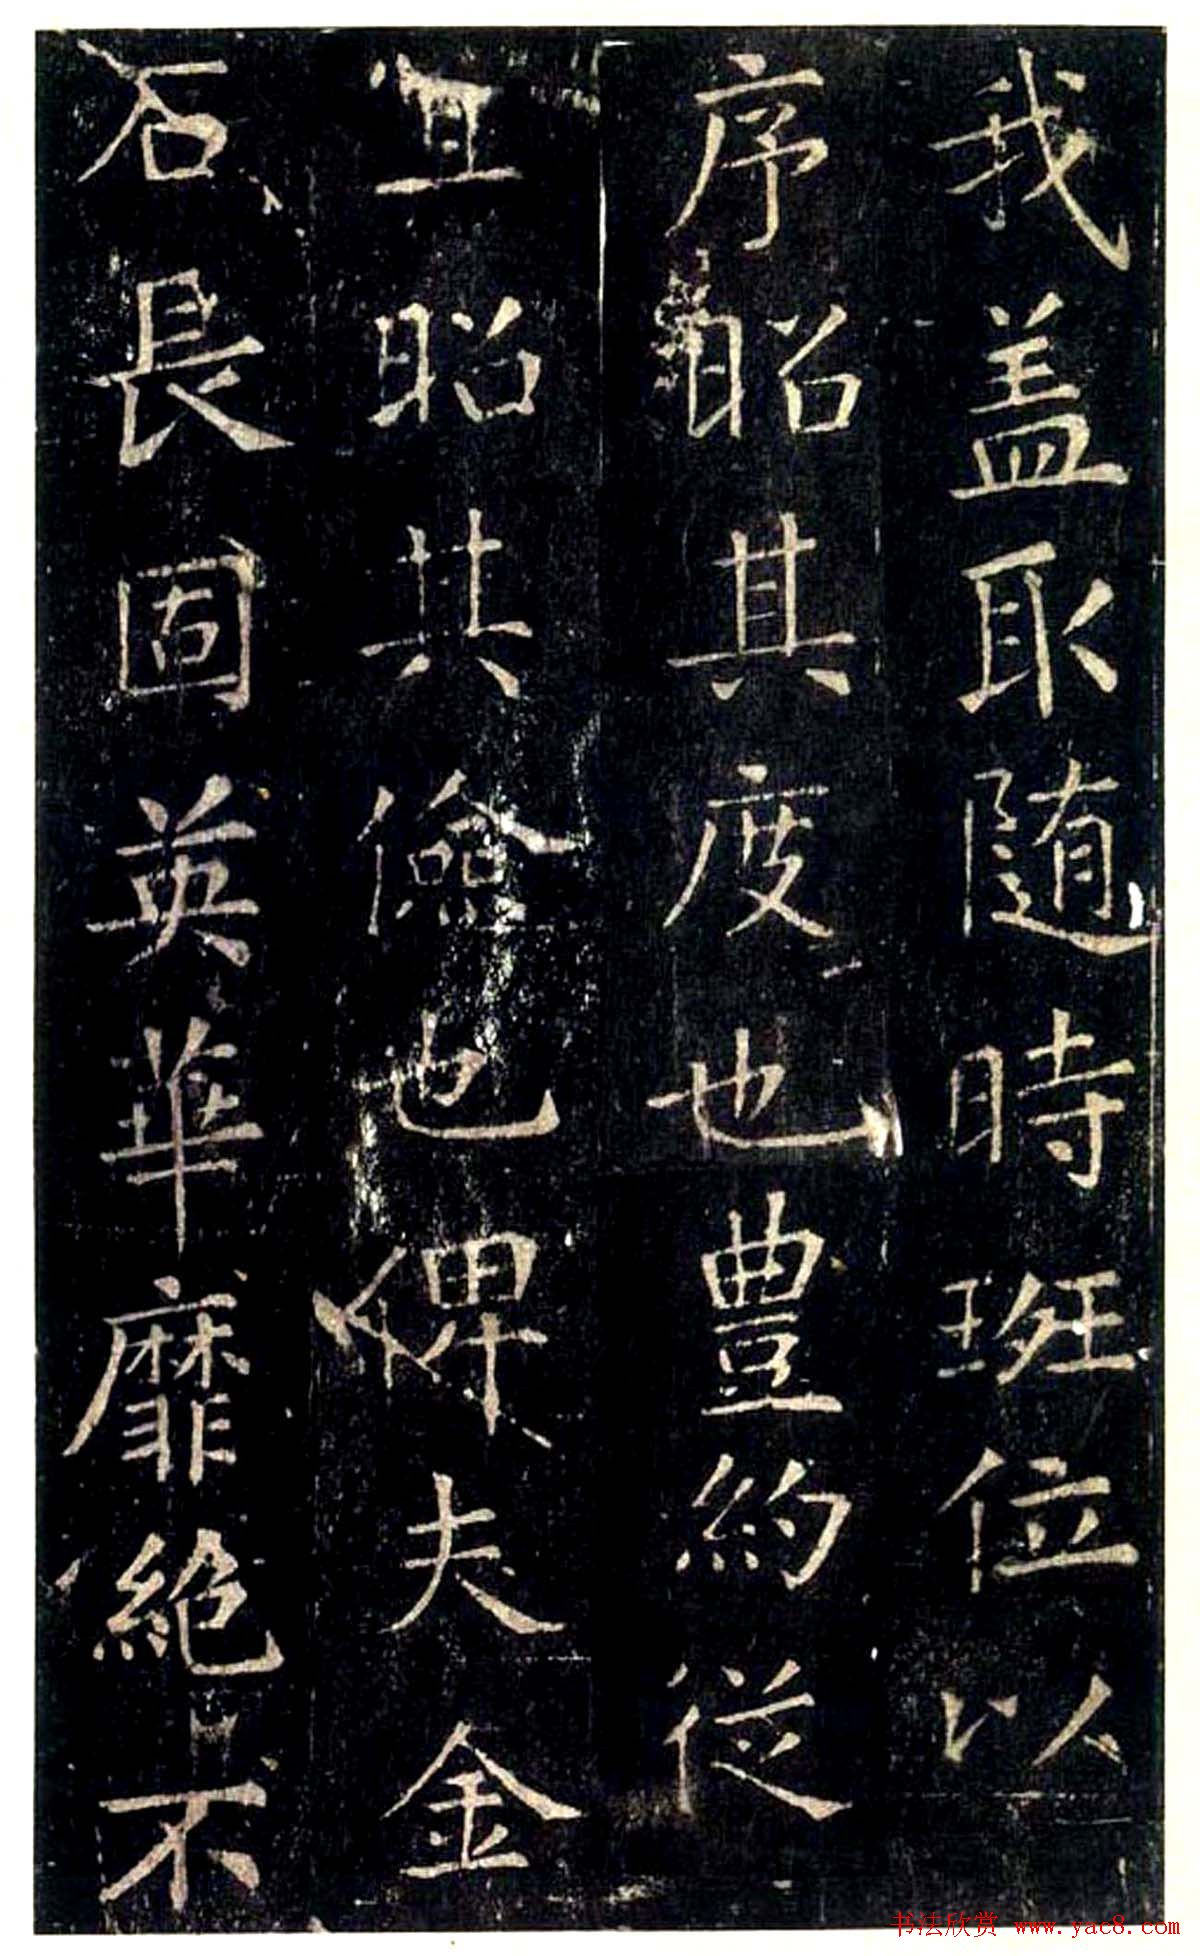 我盖取随時班位以
序昭其度也豊約從
宜昭其儉也俾夫金
石長固英華靡絶不
书法欣赏 www.yac8.com